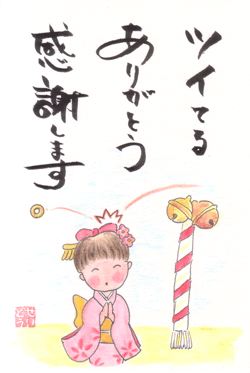 ツイてる
ありがとう
感謝します